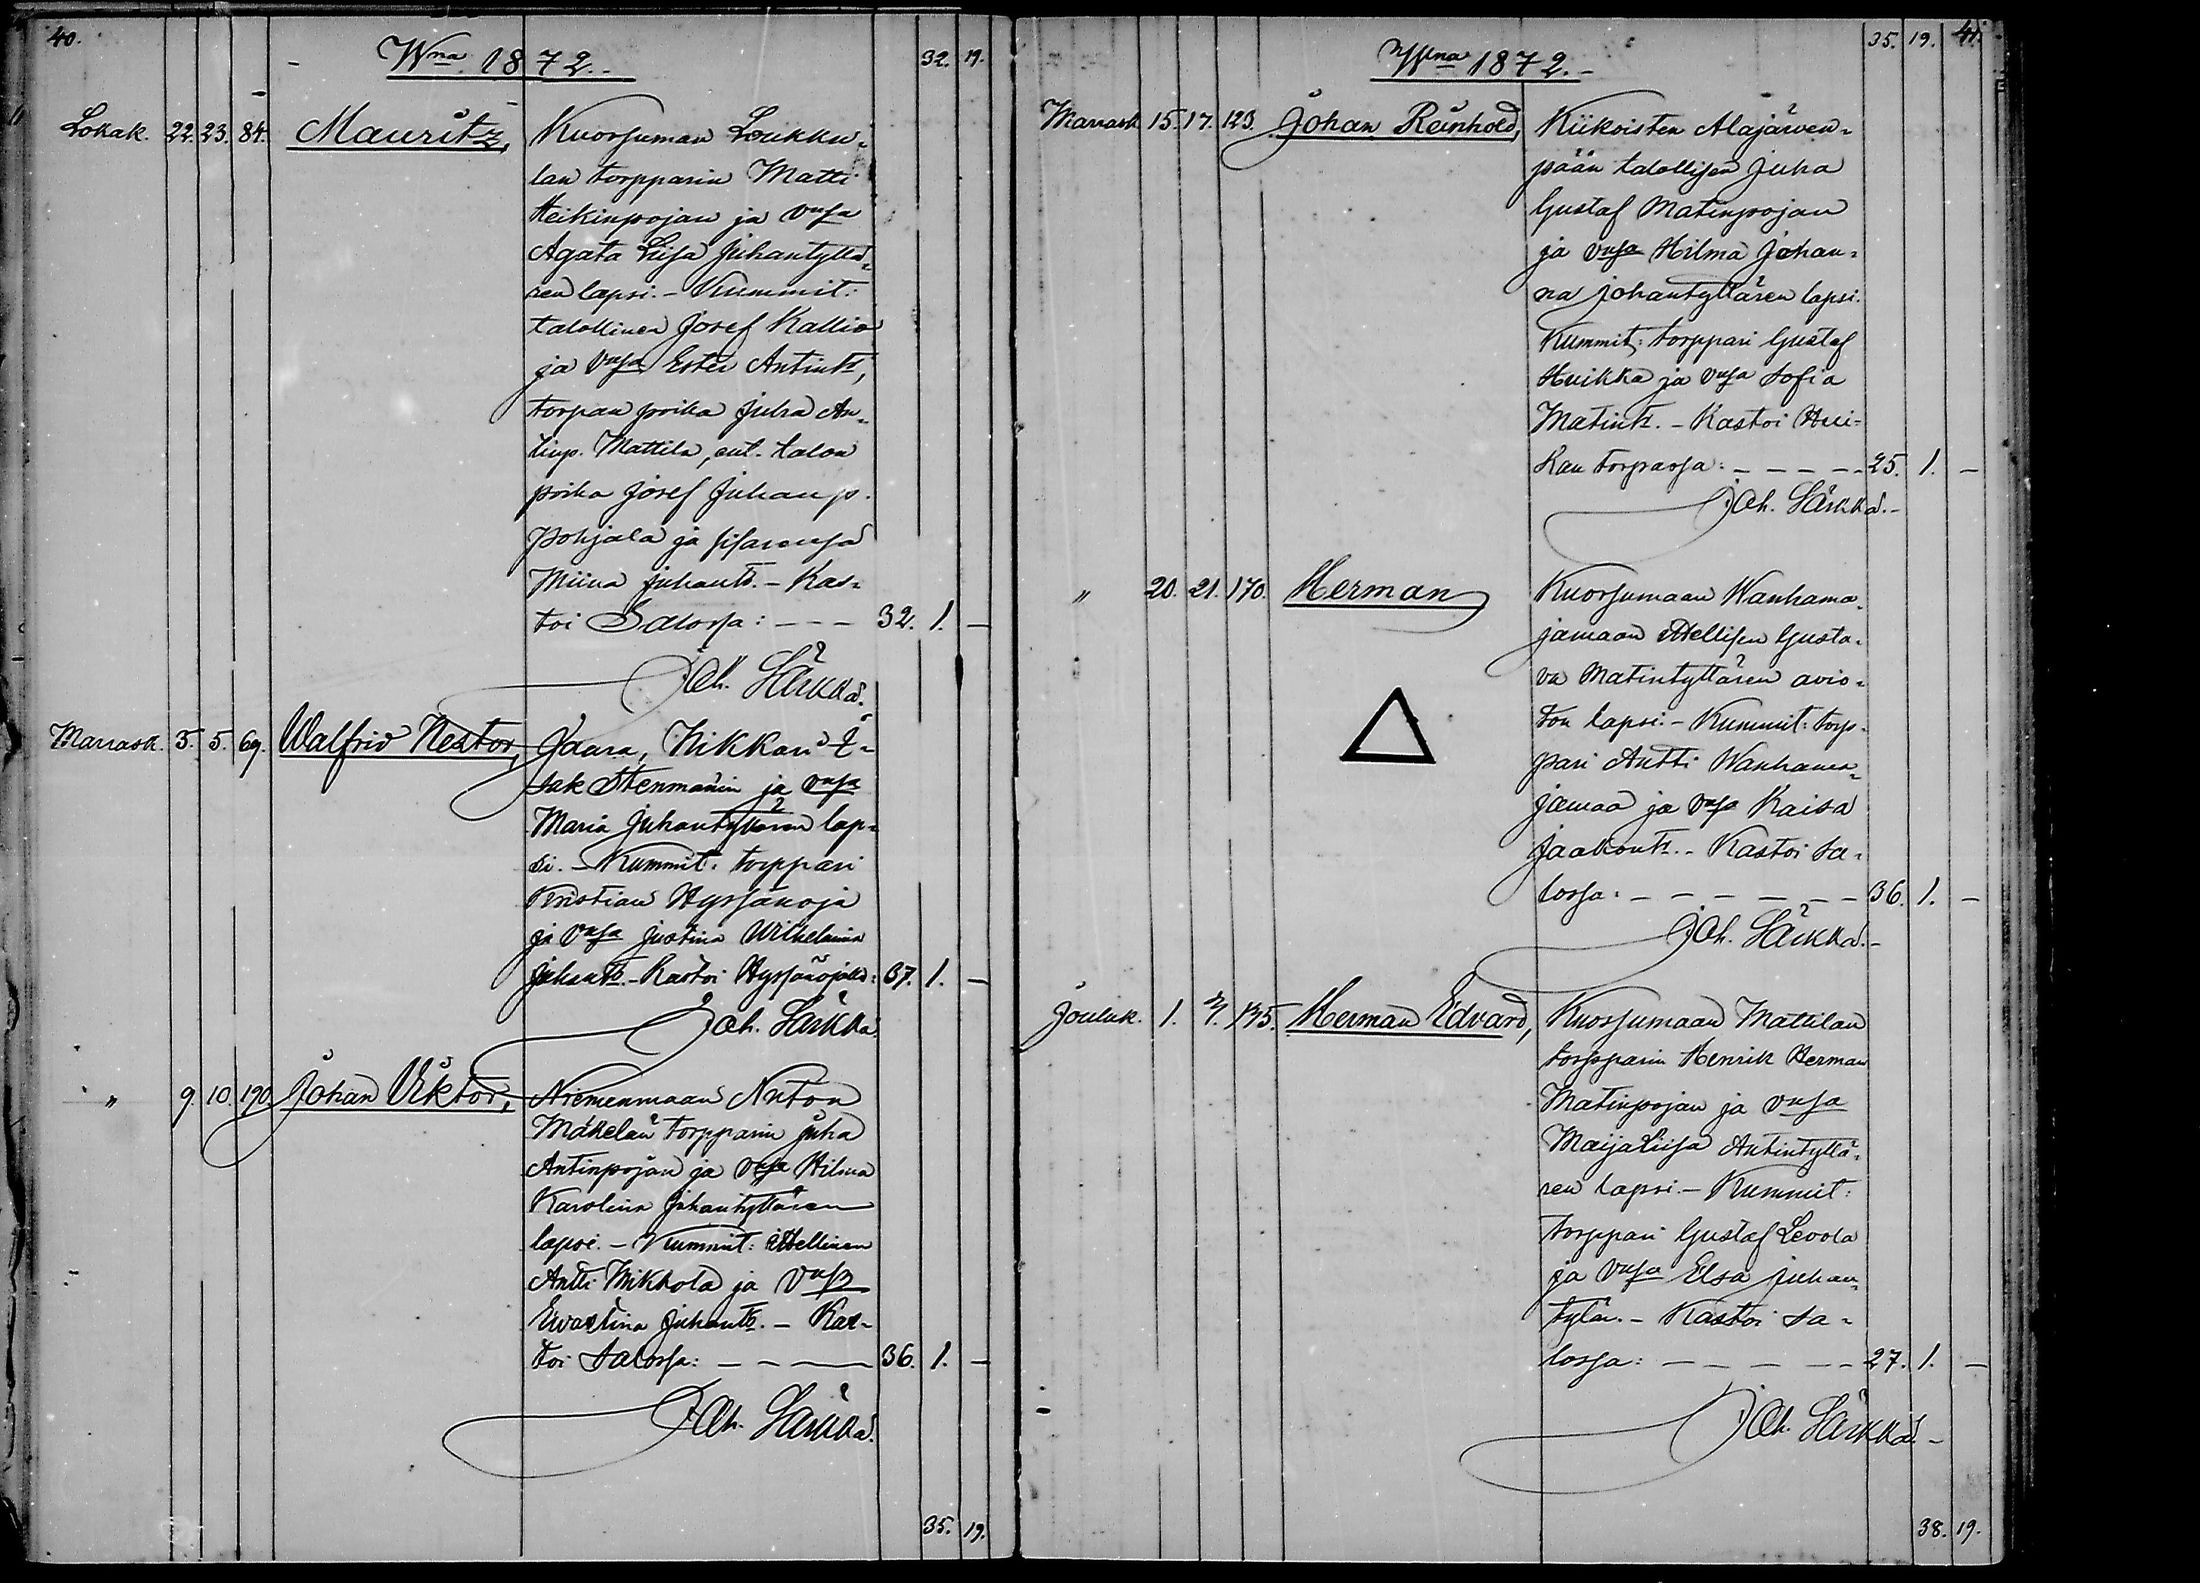 40.
Wna 1872.
32. 19.
Lokak. 22. 23. 84. Mauritz, Kuorsuman Loukku-
lan torpparin Matti
Heikinpojan ja vnsa
Agata Liisa Juhantyttä-
ren lapsi. - Kummit:
talollinen Josef Kallio
ja vnsa Ester Antintr,
torpan poika Juha An-
tinp. Mattila, ent. talon
poika Josef Juhanp.
Pohjala ja sisarensa
Miina Juhantr. - Kas-
toi Salossa: - - - 32. 1. -
Joh. Särkkä.
Marrask. 3. 5. 69. Walfrid Nestor, Jaara, Nikkari I-
sak Stenmanin ja vnsa
Maria Juhantyttären lap-
si. - Kummit: torppari
Kristian Hyssänoja
ja vnsa Justina Wilhelmina
Juhantr. - Kastoi Hyssänojalla: 37. 1. -
Joh. Särkkä.
" 9. 10. 190. Johan Viktor, Niemenmaan Anton
Mäkelän torpparin Juha
Antinpojan ja vnsa Hilma
Karolina Juhantyttären
lapsi. - Kummit: itsellinen
Antti Mikkola ja vnsa
Evastina Juhantr. - Kas-
toi Salossa: - - - 36. 1. -
Joh. Särkkä.
35. 19.
35. 19. 41.
Wna 1872. -
Marrask. 15. 17. 123. Johan Reinhold, Kiikoisten Alajärven-
pään talollisen Juha
Gustaf Matinpojan
ja vnsa Hilma Johan-
na Johantyttären lapsi.
Kummit: torppari Gustaf
Huikka ja vnsa Sofia
Matintr. - Kastoi Hui-
kan torpassa: - - - - - 25. 1. -
Joh. Särkkä. -
" 20. 21. 170. Herman Kuorsumaan Wanhama-
jamaan itsellisen Gusta-
va Matintyttären avio-
ton lapsi. - Kummit: torp-
pari Antti Wanhama-
jamaa ja vnsa Kaisa
Jaakontr. - Kastoi Sa-
lossa: - - - - - - 36. 1. -
Joh. Särkkä. -
Jouluk. 1. 2. 135. Herman Edvard, Kuorsumaan Mattilan
torpparin Henrik Herman
Matinpojan ja vnsa
Maija Liisa Antintyttä-
ren lapsi. - Kummit:
torppari Gustaf Levola
ja vnsa Elsa Juhan-
tytär. - Kastoi Sa-
lossa: - - - - - 27. 1. -
Joh. Särkkä. -
38. 19.